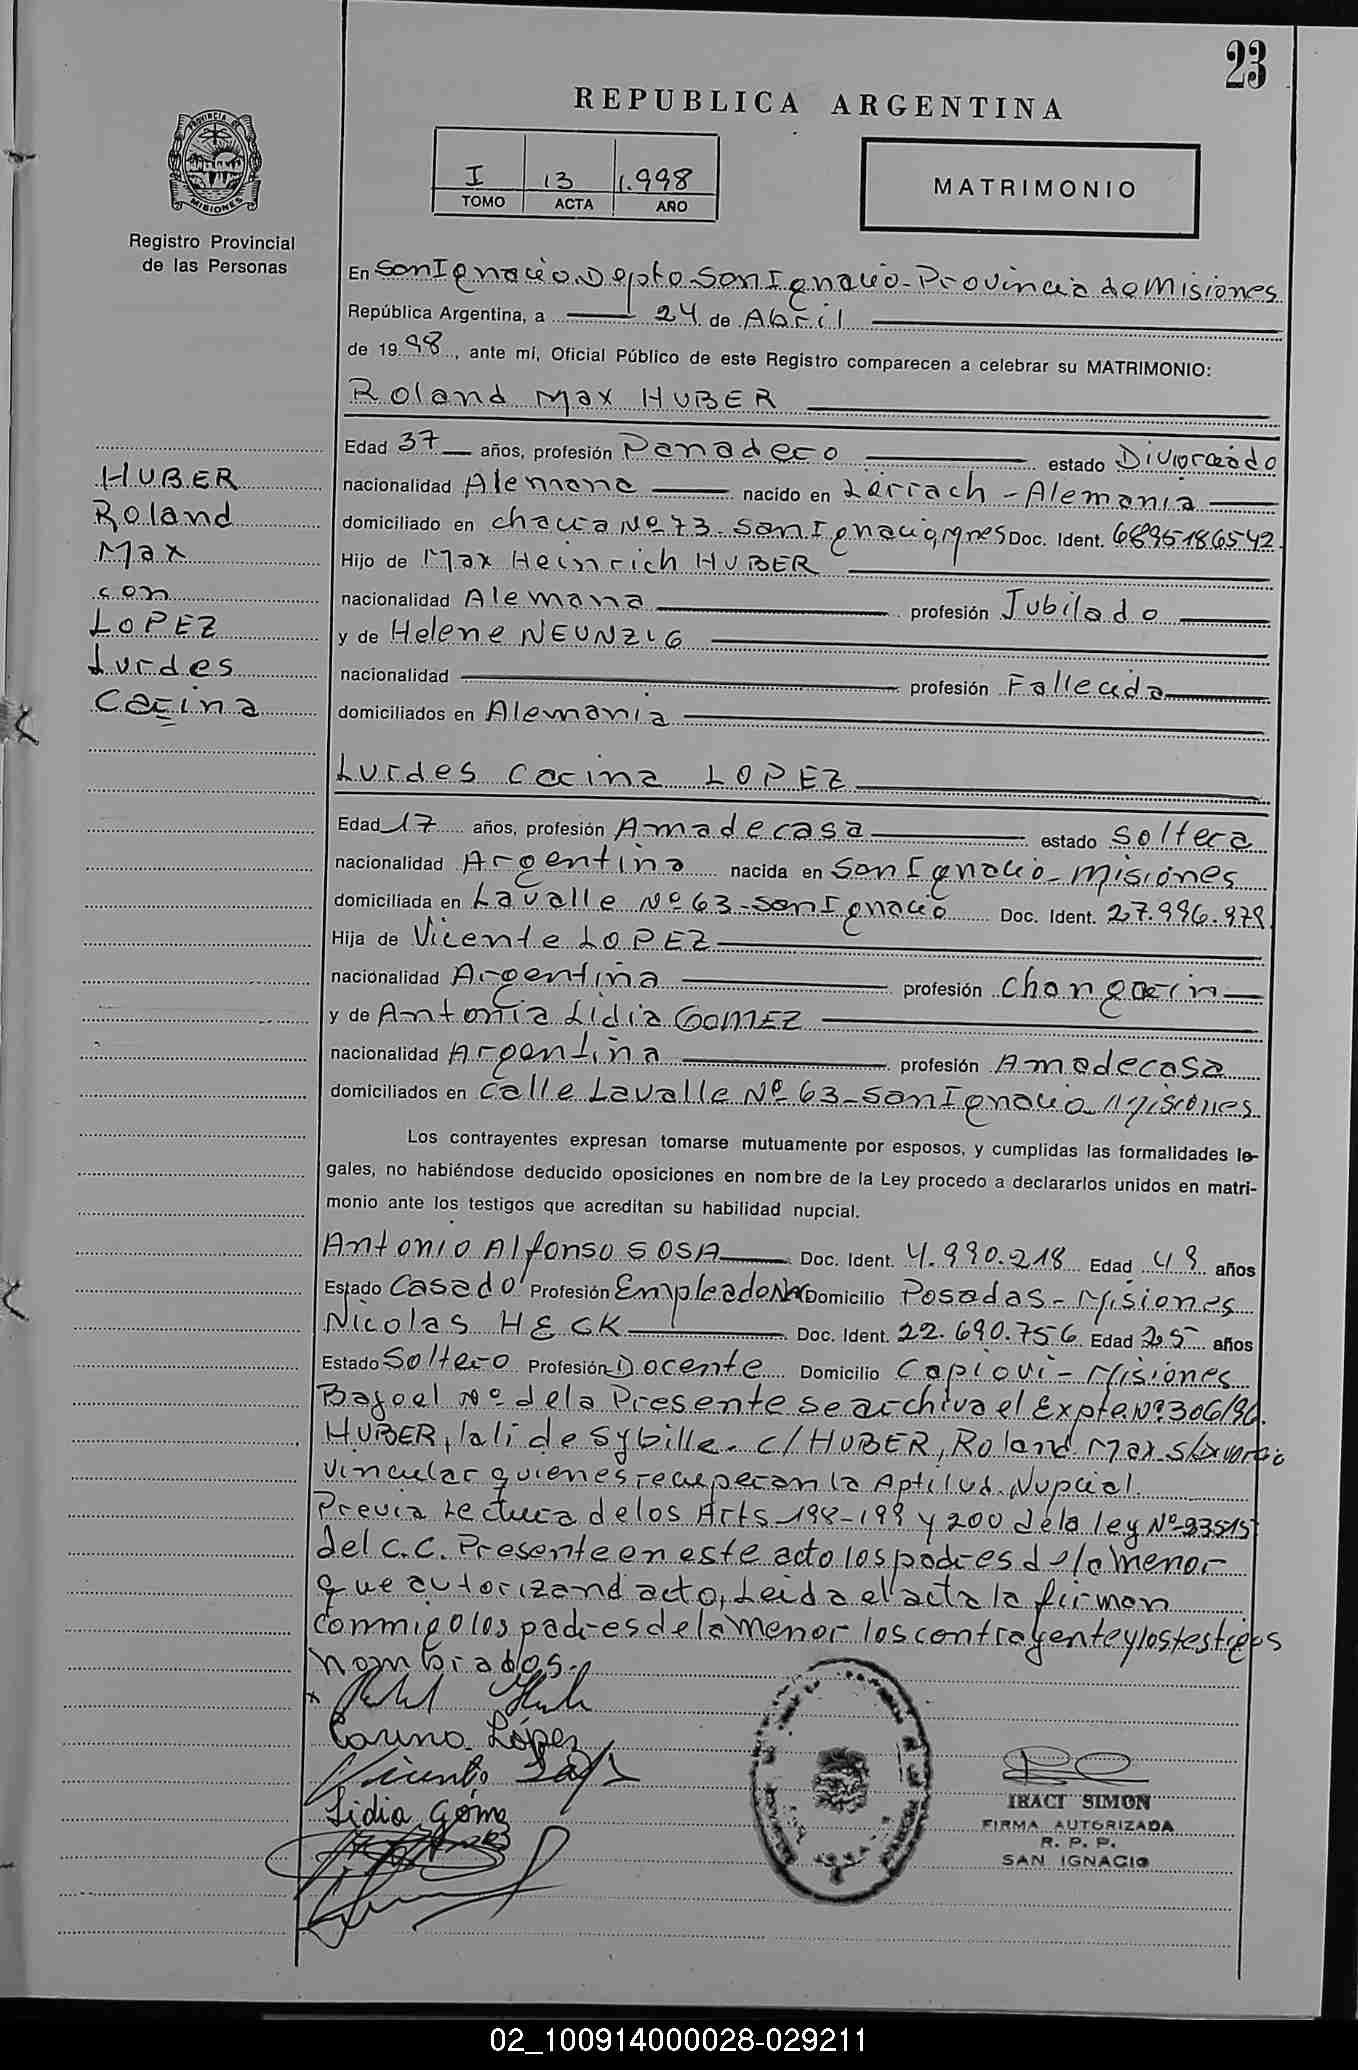 23
REPUBLICA ARGENTINA
I 13 1.998
TOMO ACTA AÑO
MATRIMONIO
PROVINCIA DE
MISIONES
Registro Provincial
de las Personas
En San Ignacio, Depto San Ignacio - Provincia de Misiones
República Argentina, a 24 de Abril
de 1998, ante mí, Oficial Público de este Registro comparecen a celebrar su MATRIMONIO:
Roland Max HUBER
Edad 37 años, profesión Panadero estado Divorciado
nacionalidad Alemana nacido en Lörrach - Alemania
domiciliado en chacra Nº 73 San Ignacio, Mnes Doc. Ident. 6895186542
Hijo de Max Heinrich HUBER
nacionalidad Alemana profesión Jubilado
y de Helene NEUNZIG
nacionalidad profesión Fallecida
domiciliados en Alemania
HUBER
Roland
Max
con
LOPEZ
Lurdes
Carina
Lurdes Carina LOPEZ
Edad 17 años, profesión Ama de casa estado Soltera
nacionalidad Argentina nacida en San Ignacio - Misiones
domiciliada en Lavalle Nº 63 - San Ignacio Doc. Ident. 27.996.979
Hija de Vicente LOPEZ
nacionalidad Argentina profesión Changarin
y de Antonia Lidia GOMEZ
nacionalidad Argentina profesión Ama de casa
domiciliados en Calle Lavalle Nº 63 - San Ignacio Misiones
Los contrayentes expresan tomarse mutuamente por esposos, y cumplidas las formalidades le-
gales, no habiéndose deducido oposiciones en nombre de la Ley procedo a declararlos unidos en matri-
monio ante los testigos que acreditan su habilidad nupcial.
Antonio Alfonso SOSA Doc. Ident. 4.990.218 Edad 49 años
Estado Casado Profesión Empleado Nac Domicilio Posadas - Misiones
Nicolas HECK Doc. Ident. 22.690.756 Edad 25 años
Estado Soltero Profesión Docente Domicilio Capiovi - Misiones
Bajo el Nº de la Presente se archiva el Expte Nº 306/96
HUBER, Sybille c/ HUBER, Roland Max s/Divorcio
vincular quienes recuperan la Aptitud Nupcial.
Previa Lectura de los Arts 198-199 y 200 de la ley Nº 23515
del C.C. Presente en este acto los padres de la menor
que autorizan el acto, Leida el acta la firman
conmigo los padres de la menor los contrayente y los testigos
nombrados.
Carina López
Vicente
Lidia Gómez
IRACI SIMON
FIRMA AUTORIZADA
R. P. P.
SAN IGNACIO
02_100914000028-029211